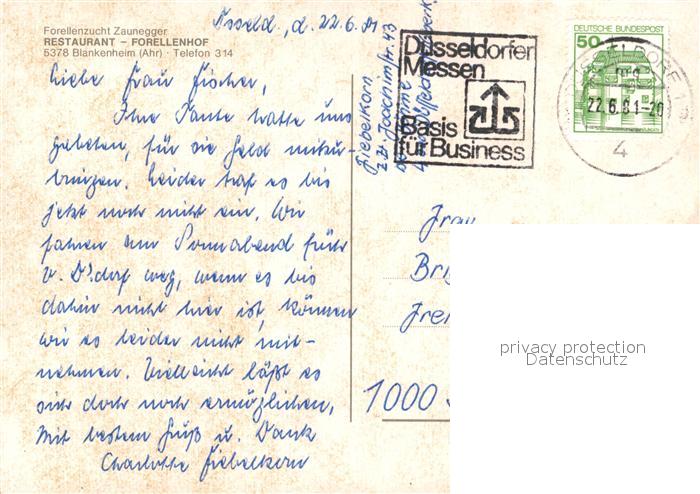 Forellenzucht Zaunegger
RESTAURANT – FORELLENHOF
5378 Blankenheim (Ahr) · Telefon 314
d. 22.6.81
Liebe Frau Fischer,
Ihre Tante hatte uns
gebeten, für sie Geld mitzu-
bringen. Leider traf es bis
jetzt noch nicht ein. Wir
fahren am Sonnabend früh
v. D'dorf weg, wenn es bis
dahin nicht hier ist, können
wir es leider nicht mit-
nehmen. Vielleicht läßt es
sich doch noch ermöglichen,
Mit bestem Gruß u. Dank
Charlotte Fiebelkorn
Fiebelkorn
z.Zt. Joachimstr. 43
Düsseldorfer
Messen
Basis
für Business
DEUTSCHE BUNDESPOST
50
22.6.81-20
4
Frau
Bri
1000
privacy protection
Datenschutz